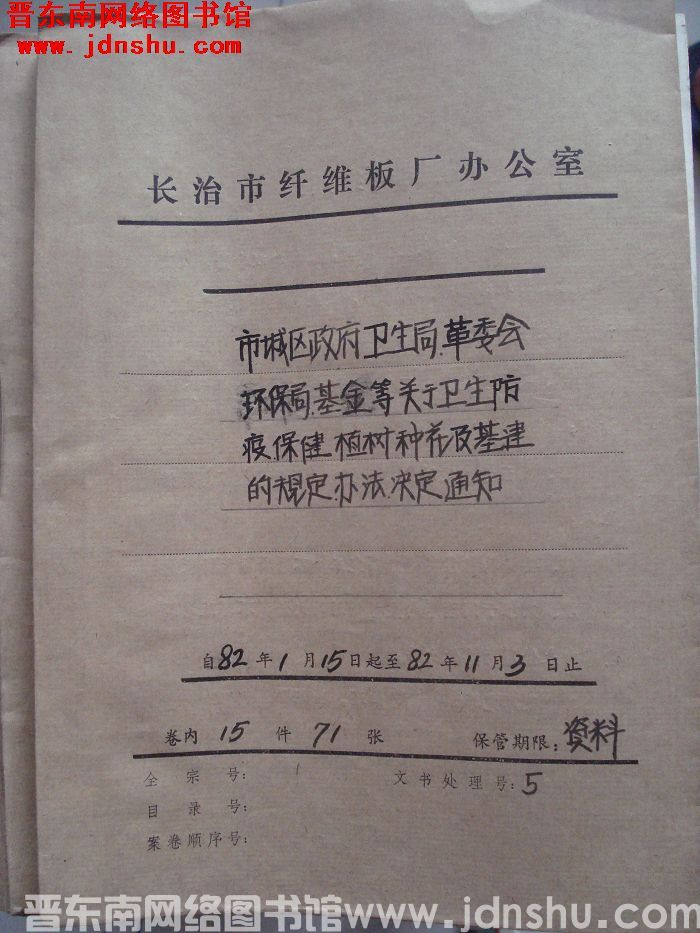 晋东南网络图书馆
www.jdnshu.com
长治市纤维板厂办公室
市城区政府卫生局.革委会
环保局.基金等关于卫生防
疫保健.植树种花及基建
的规定.办法.决定.通知
自82年1月15日起至82年11月3日止
卷内 15 件 71 张 保管期限:资料
全宗号: 文书处理号:5
目录号:
案卷顺序号:
晋东南网络图书馆 www.jdnshu.com